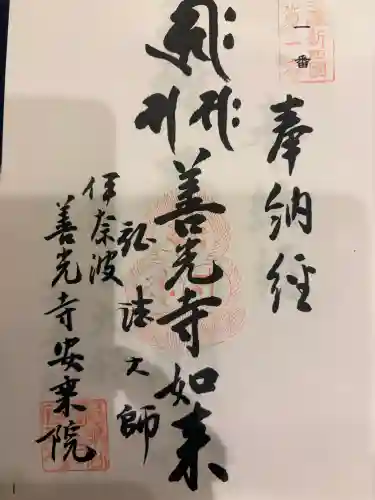 一番
奉納経
善光寺如来
弘法大師
伊奈波
善光寺安乗院